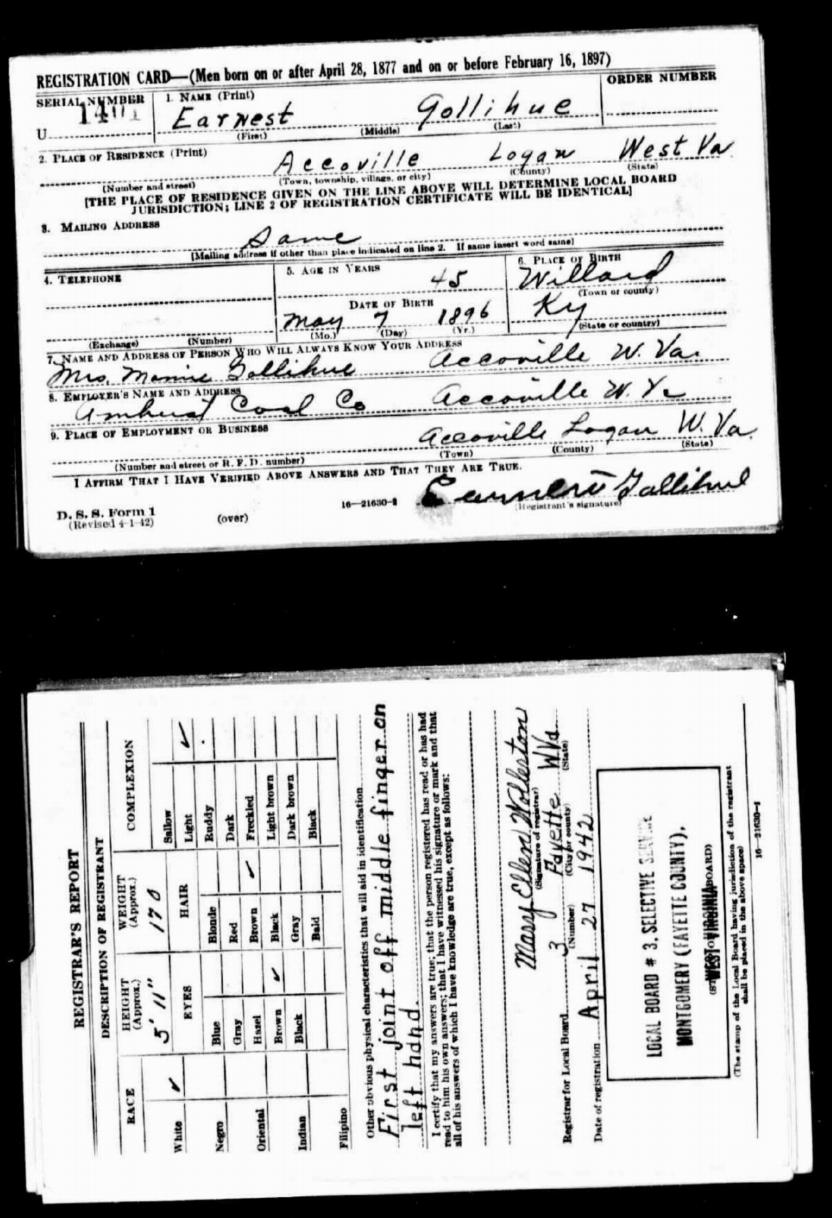 REGISTRATION CARD—(Men born on or after April 28, 1877 and on or before February 16, 1897)
SERIAL NUMBER 1. NAME (Print) ORDER NUMBER
U Earnest Gollihue
(First) (Middle) (Last)
2. PLACE OF RESIDENCE (Print)
Accoville Logan West Va
(Number and street) (Town, township, village, or city) (County) (State)
[THE PLACE OF RESIDENCE GIVEN ON THE LINE ABOVE WILL DETERMINE LOCAL BOARD
JURISDICTION; LINE 2 OF REGISTRATION CERTIFICATE WILL BE IDENTICAL]
3. MAILING ADDRESS
Same
[Mailing address if other than place indicated on line 2. If same insert word same]
4. TELEPHONE 5. AGE IN YEARS 6. PLACE OF BIRTH
45 Willard
(Town or county)
DATE OF BIRTH
May 7 1896 Ky
(Exchange) (Number) (Mo.) (Day) (Yr.) (State or country)
7. NAME AND ADDRESS OF PERSON WHO WILL ALWAYS KNOW YOUR ADDRESS
Mrs. Gollihue Accoville W. Va.
8. EMPLOYER'S NAME AND ADDRESS
Amherst Coal Co Accoville W. Va
9. PLACE OF EMPLOYMENT OR BUSINESS
Accoville Logan W. Va.
(Number and street or R. F. D. number) (Town) (County) (State)
I AFFIRM THAT I HAVE VERIFIED ABOVE ANSWERS AND THAT THEY ARE TRUE.
D. S. S. Form 1
(Revised 4-1-42) (over) 16—21630-1 Gollihue
(Registrant's signature)
REGISTRAR'S REPORT
DESCRIPTION OF REGISTRANT
RACE HEIGHT (Approx.) WEIGHT (Approx.) COMPLEXION
5' 11" 170
White ✓ EYES HAIR Sallow
Light ✓
Negro Blue Blonde Ruddy
Gray Red Dark
Oriental Hazel Brown ✓ Freckled
Brown ✓ Black Light brown
Indian Black Gray Dark brown
Bald Black
Filipino
Other obvious physical characteristics that will aid in identification
First joint off middle finger on
left hand.
I certify that my answers are true; that the person registered has read or has had
read to him his own answers; that I have witnessed his signature or mark and that
all of his answers of which I have knowledge are true, except as follows:
Mary Ellen
(Signature of registrar)
Registrar for Local Board 3 Fayette W Va
(Number) (City or county) (State)
Date of registration April 27 1942
LOCAL BOARD # 3, SELECTIVE SERVICE
MONTGOMERY (FAYETTE COUNTY),
WEST VIRGINIA
(The stamp of the Local Board having jurisdiction of the registrant
shall be placed in the above space)
16—21630-1